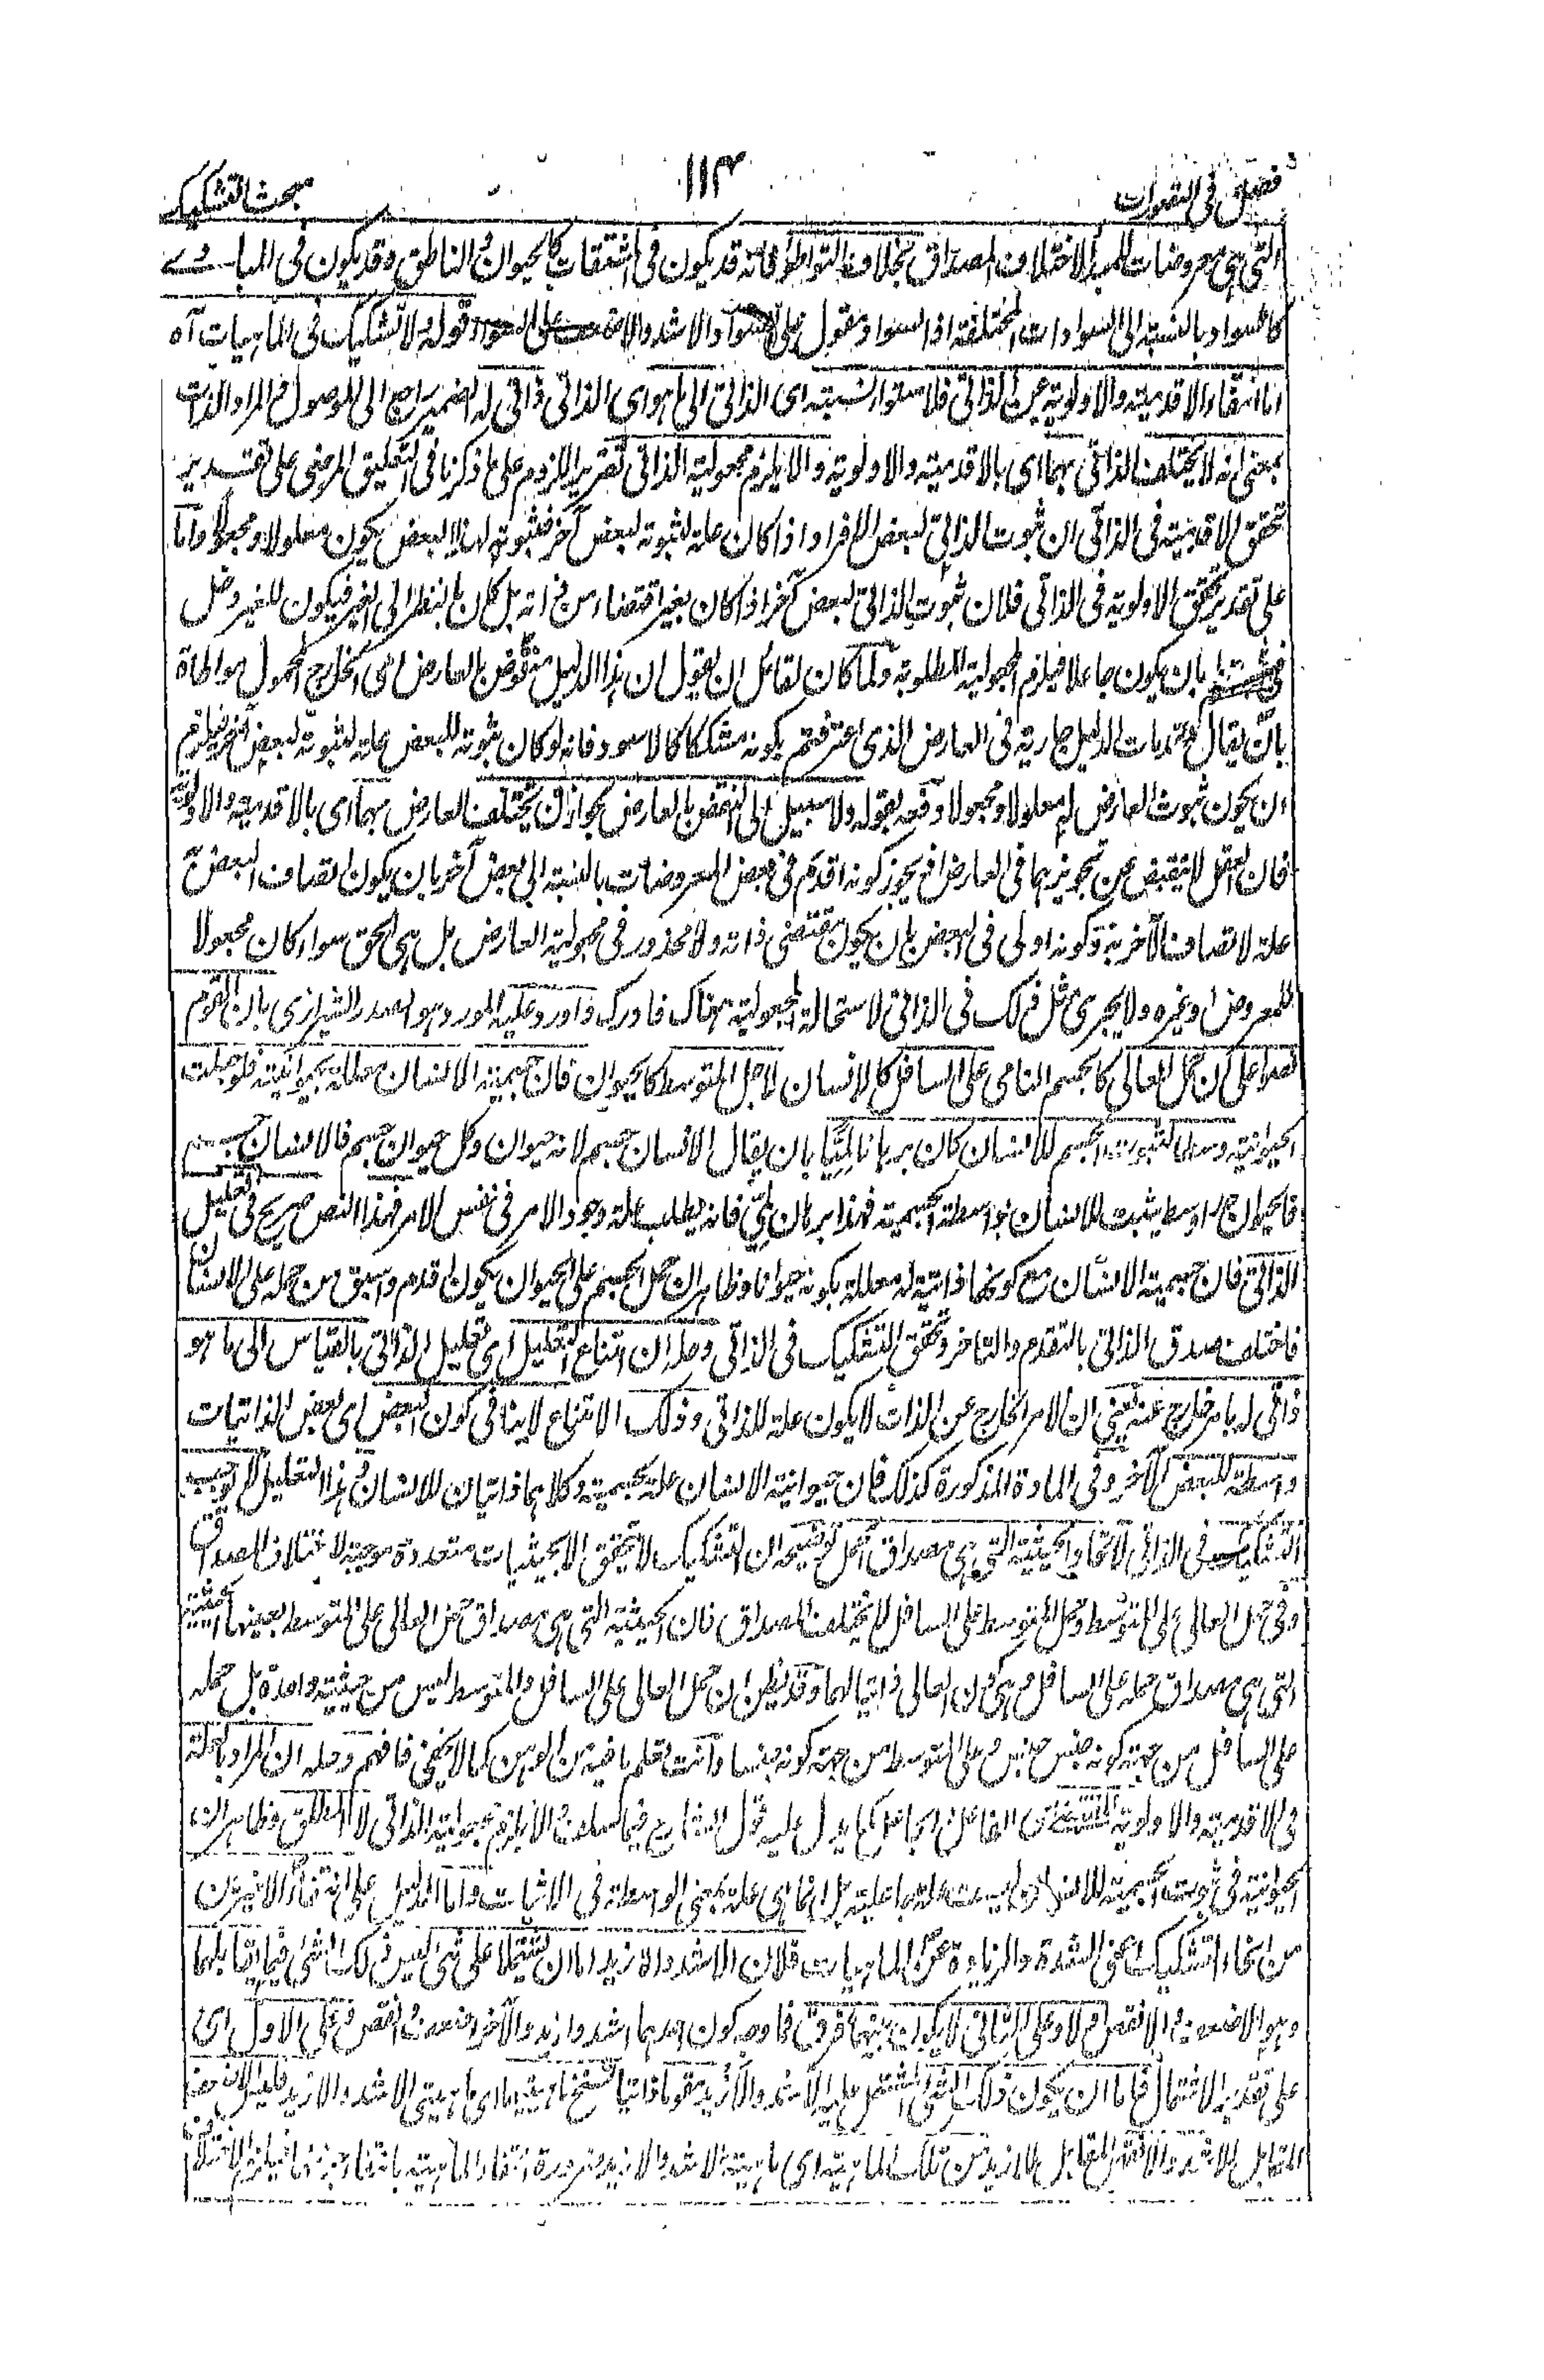 فصل فى التصورات ١١٣ مبحث التشكيك
التى هى معروضات للمبدأ لاختلاف المصداق بخلاف التواطؤ فانه قد يكون فى المشتقات كالحيوان والناطق وقد يكون فى المبادى
كالسواد بالنسبة الى السوادات المختلفة اذ السواد مقول على السواد الاشد والاضعف على السواء قوله لا تشكيك فى الماهيات آه
اما انتفاء الاقدمية والاولوية عن الذاتى فلاستواء نسبته اى الذاتى الى ما هو اى الذاتى ذاتى له الضمير راجع الى الموصول فالمراد الذات
بمعنى انه لا يختلف الذاتى بهما اى بالاقدمية والاولوية والا يلزم مجعولية الذاتى تقرير اللزوم على ما ذكرنا فى التعليق المرضى على تقدير
تحقق الاقدمية فى الذاتى ان ثبوت الذاتى لبعض الافراد اذا كان علة لثبوته لبعض آخر فثبوته لهذا البعض يكون معلولا ومجعولا واما
على تقدير تحقق الاولوية فى الذاتى فلان ثبوت الذاتى لبعض آخر اذا كان بغير اقتضاء من ذاته بل كان بالنظر الى الغير فيكون للغير دخل
فى ثبوته بان يكون جاعلا فيلزم المجعولية المطلوبة ولما كان لقائل ان يقول ان هذا الدليل منقوض بالعارض اى الخارج المحمول مواطاة
بان يقال مقدمات الدليل جارية فى العارض الذى اعترفتم بكونه مشككا كالاسود فانه لو كان ثبوته للبعض علة لثبوته لبعض آخر فيلزم
ان يكون ثبوت العارض له معلولا ومجعولا دفعه بقوله ولا سبيل الى النقض بالعارض بجواز ان يختلف العارض بهما اى بالاقدمية والاولوية
فان العقل لا ينقبض عن تجويزهما فى العارض اذ يجوز كونه اقدم فى بعض المعروضات بالنسبة الى بعض آخر بان يكون اتصاف البعض به
علة لاتصاف الآخر به وكونه اولى فى البعض بان يكون مقتضى ذاته ولا محذور فى مجعولية العارض بل هى الحق سواء كان مجعولا
للمعروض او غيره ولا يجرى مثل ذلك فى الذاتى لاستحالة المجعولية هناك فادرك واورد عليه المورد هو الصدر الشيرازى بان القوم
نصوا على ان حمل العالى كالجسم النامى على السافل كالانسان لاجل المتوسط كالحيوان فان جسمية الانسان معللة بحيوانيته فلو جعلت
الحيوانية وسطا لثبوت الجسم للانسان كان برهانا لميا بان يقال الانسان جسم لانه حيوان وكل حيوان جسم فالانسان جسم
فالحيوان ح اوسط يثبت للانسان بواسطة الجسمية فهذا برهان لمى فانه يطلب علة وجود الامر فى نفس الامر فهذا النص صريح فى تعليل
الذاتى فان جسمية الانسان مع كونها ذاتية له معللة بكونه حيوانا وظاهر ان حمل الجسم على الحيوان يكون اقدم واسبق من حمله على الانسان
فاختلف صدق الذاتى بالتقدم والتاخر وتحقق التشكيك فى الذاتى وحله ان امتناع التعليل اى تعليل الذاتى بالقياس الى ما هو
ذاتى له بامر خارج عنه يعنى ان الامر الخارج عن الذات لا يكون علة للذاتى وذلك الامتناع لا ينافى كون البعض اى بعض الذاتيات
واسطة للبعض الآخر وفى المادة المذكورة كذلك فان حيوانية الانسان علة لجسميته وكلاهما ذاتيان للانسان فهذا التعليل لا يوجب
التشكيك فى الذاتى لاتحاد الحيثية التى هى مصداق الحمل توضيحه ان التشكيك لا يتحقق الا بحيثيات متعددة موجبة لاختلاف المصداق
وفى حمل العالى على المتوسط وحمل المتوسط على السافل لا يختلف المصداق فان الحيثية التى هى مصداق حمل العالى على المتوسط بعينها الحيثية
التى هى مصداق حمله على السافل وهى كون العالى ذاتيا لهما وقد يظن ان حمل العالى على السافل والمتوسط ليس من حيثية واحدة بل حمله
على السافل من جهة كونه جنس جنس وعلى المتوسط من جهة كونه جنسا وانت تعلم ما فيه من الوهن كما لا يخفى فافهم وحله ان المراد بالعلة
فى الاقدمية والاولوية الفاعل الجاعل كما يدل عليه قول الشارح فيما سلف والا يلزم مجعولية الذاتى لا المطلق وظاهر ان
الحيوانية فى ثبوت الجسمية للانسان ليست علة جاعلية بل انما هى علة بمعنى الواسطة فى الاثبات واما الدليل على انتفاء الاخيرين
من انحاء التشكيك اعنى الشدة والزيادة عن الماهيات فلان الاشد والازيد اما ان يشتملا على شئ ليس ذلك الشئ فيما يقابلهما
وهو الاضعف والانقص او لا وعلى الثانى لا يكون بينهما فرق فما وجه كون احدهما اشد وازيد والآخر اضعف وانقص وعلى الاول اى
على تقدير الاشتمال فاما ان يكون ذلك الشئ المشتمل عليه الاشد والازيد مقوما ذاتيا لسنخ ماهيتهما اى ماهيتى الاشد والازيد فليس الاضعف
المقابل للاشد والانقص المقابل للازيد من تلك الماهية اى ماهية الاشد والازيد ضرورة انتفاء الماهية بانتفاء جزئها فيلزم الاختلاف